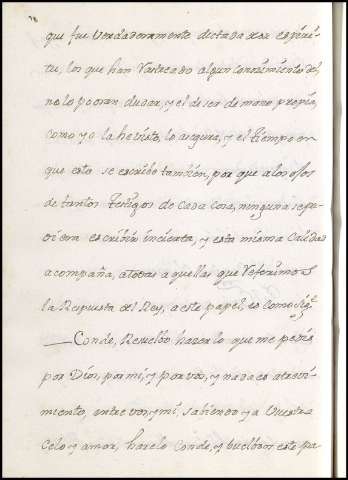 que fue verdaderamente dictada por espiri-
tu, los que han rastreado algun conosimiento del,
no lo podran dudar, y el de ser de mano propia,
como yo la he visto, lo asegura, y el tiempo en
que esto se escribe tambien, por que a los ojos
de tantos testigos de cada cosa, ninguna se pu-
diera escribir incierta, y esta misma calidad
acompaña, a todas aquellas que referimos
la Respuesta del Rey, a este papel, es como sige
Conde, Resuelbo haser lo que me pedis
por Dios, por mi, y por vos, y nada es atrevi-
miento, entre vos, y mi, sabiendo yo vuestro
celo y amor, harelo Conde, y buelboos este pa